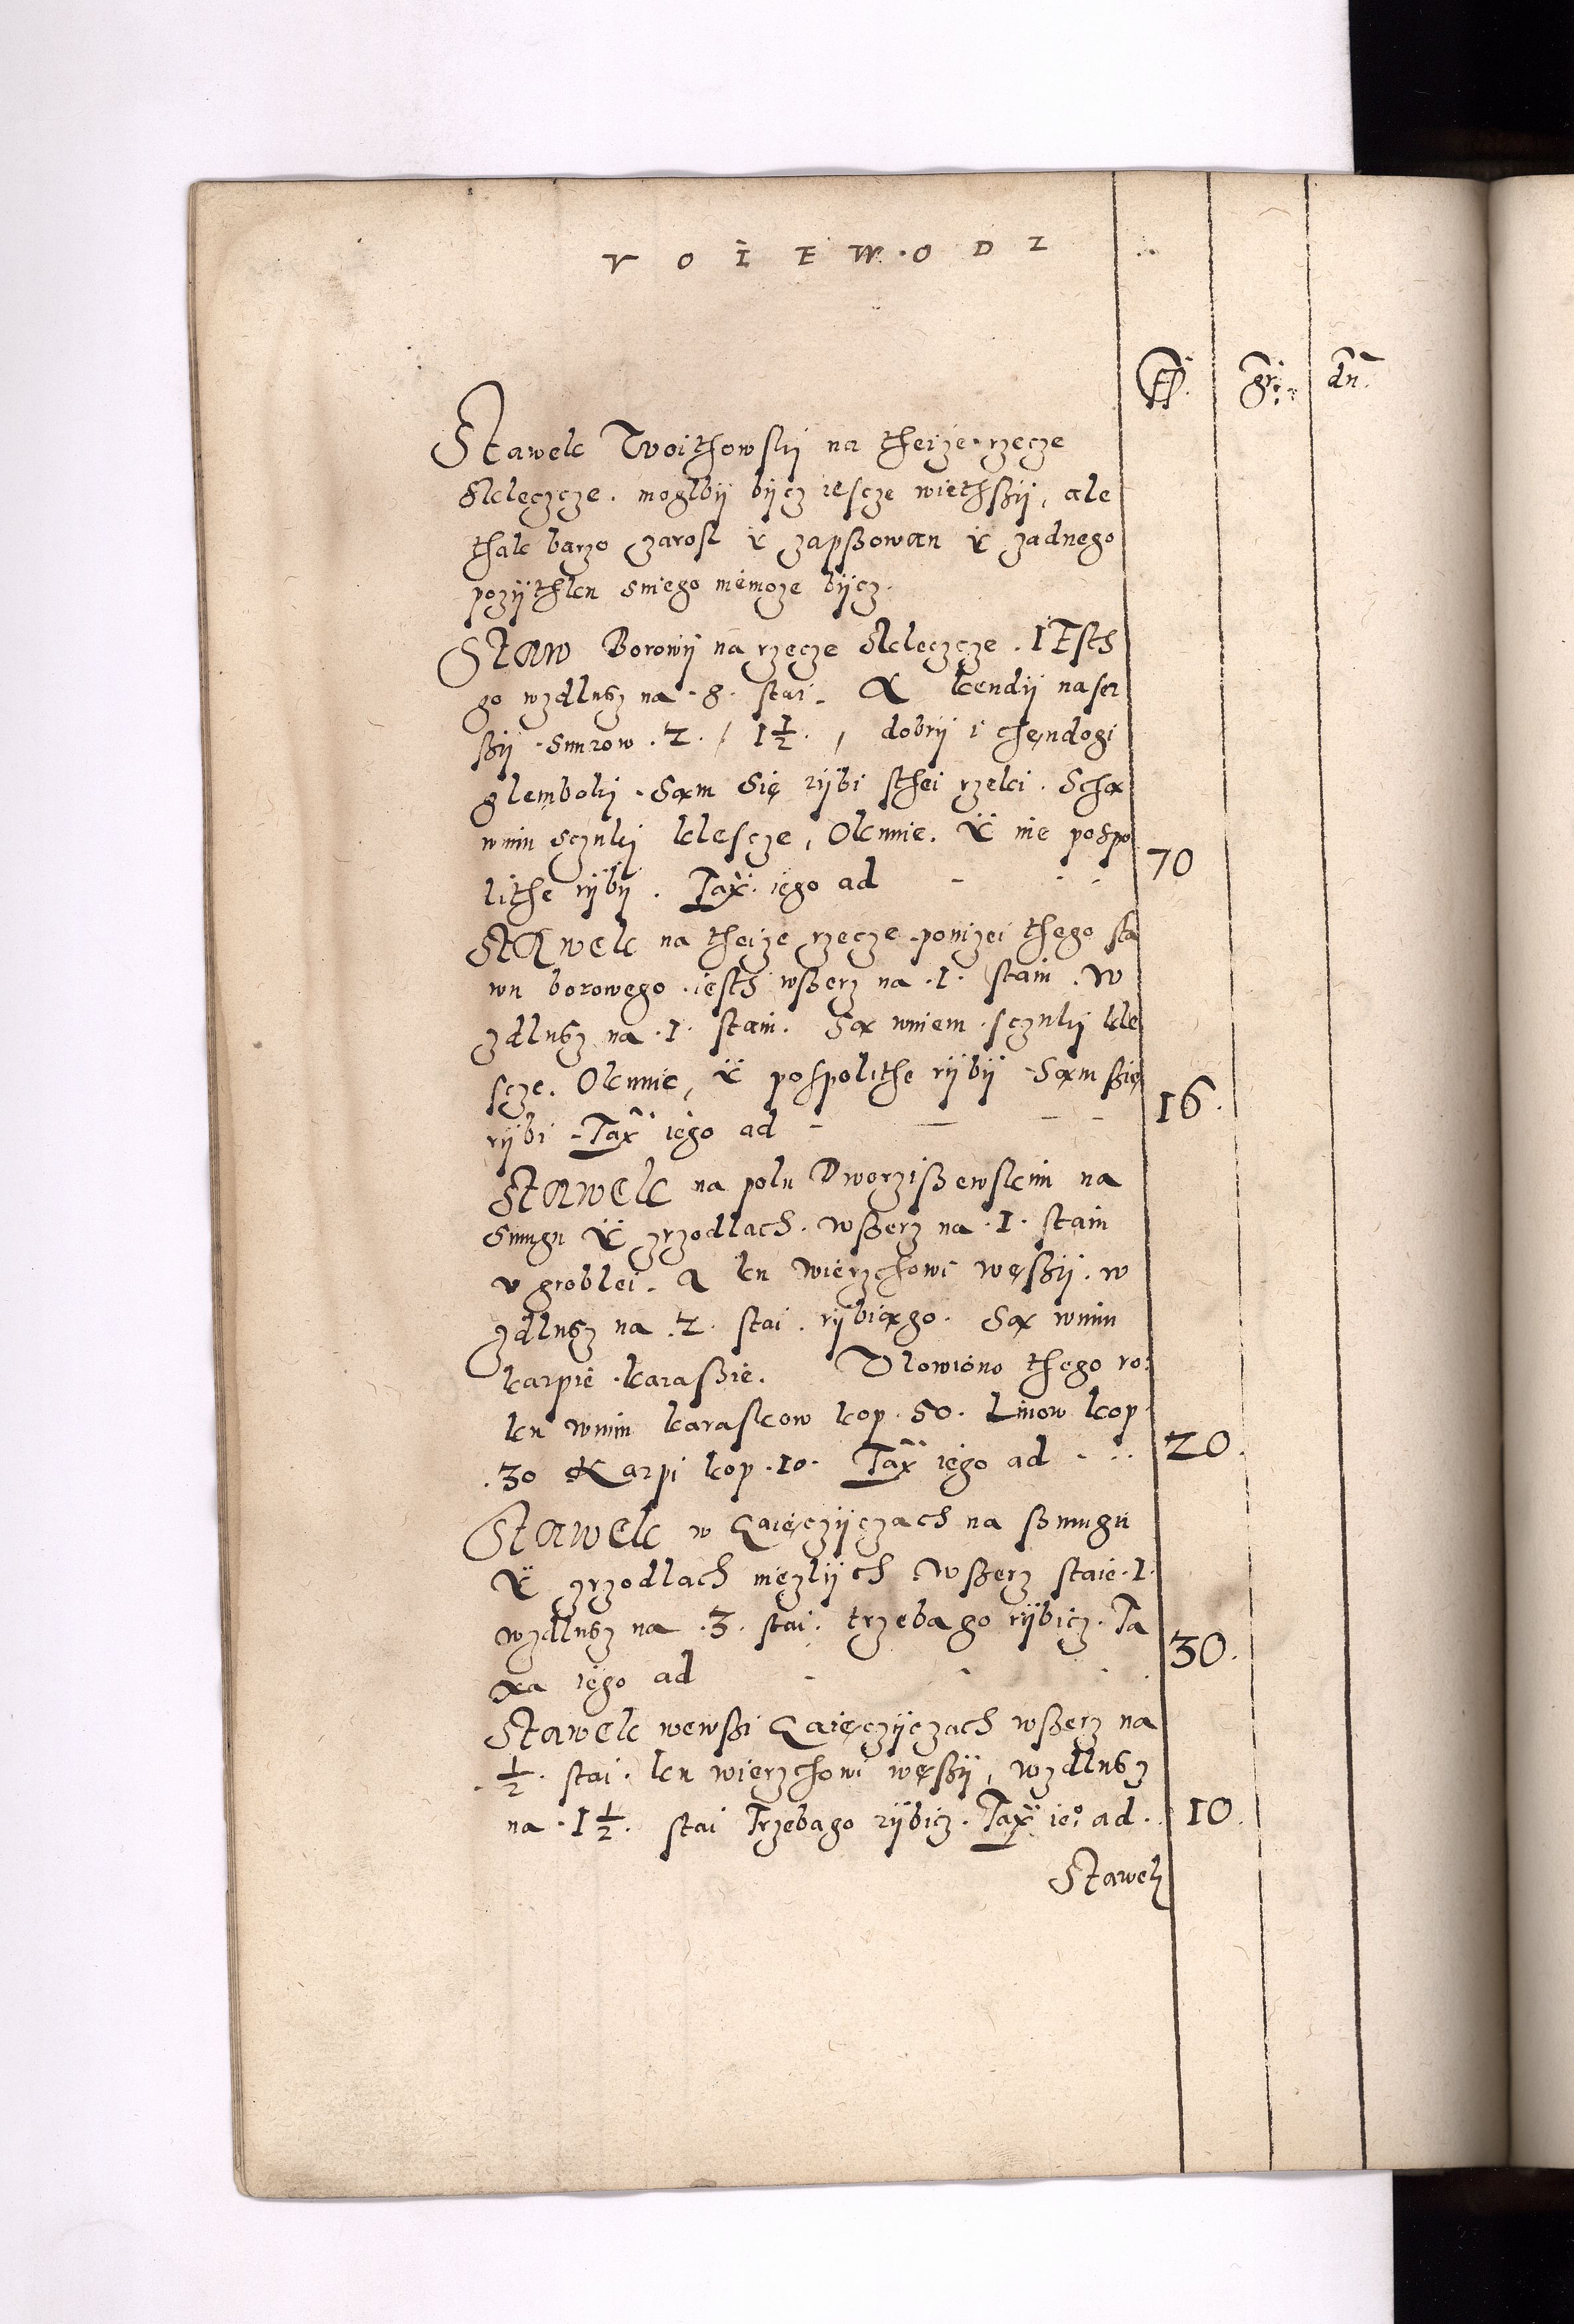 VOIEWODZ
Fl. gr. dn.
Stawek Woithowskij na theize rzecze
Kleczcze. moglbÿ bÿcz iescze wiethßÿ, ale
thak barzo zarosl ÿ zapßowan ÿ zadnego
pozÿthku sniego niemoze bÿcz.
Staw Borowÿ na rzecze Kleczcze. IEsth
go wzdlusz na .8. stai. A kendÿ naser
ßÿ snurow .2. / 1½. , dobrÿ i chędogi
glembokj. Sąm się rÿbi sthei rzeki. Schą
wnim sczukj klescze, Okunie. ÿ ine pospo
lithe rÿbÿ. Tax. iego ad - - - 70
Stawek na theize rzecze ponizei thego sta
wu borowego iesth wßerz na .1. staiu. W
zdlusz na .1. staiu. Są wniem sczukj kle
scze. Okunie, ÿ pospolithe rÿbÿ Sąm ßię
rÿbi. Tax iego ad - - - 16.
Stawek na polu Dworzißewskim na
smugu ÿ zrzodlach. wßerz na .1. staiu
v groblei. A ku wierzchowi węßÿ. w
zdlusz na .2. stai. rÿbiągo. Są wnim
karpie karaßie. Vlowiono thego ro:
ku wnim karaskow kop .50. Linow kop
.30 Karpi kop .10. Tax iego ad - .. 20.
Stawek w Łaięczÿczach na ßmugu
ÿ zrzodlach niezlÿch. Wßerz staie .1.
wzdlusz na .3. stai. trzebago rÿbicz. Ta
xa iego ad - - - 30.
Stawek wewßi Łaięczÿczach wßerz na
.½. stai. ku wierzchowi węßÿ, wzdlusz
na .1½. stai Trzebago rÿbicz. Tax ieº ad .. 10.
Stawek